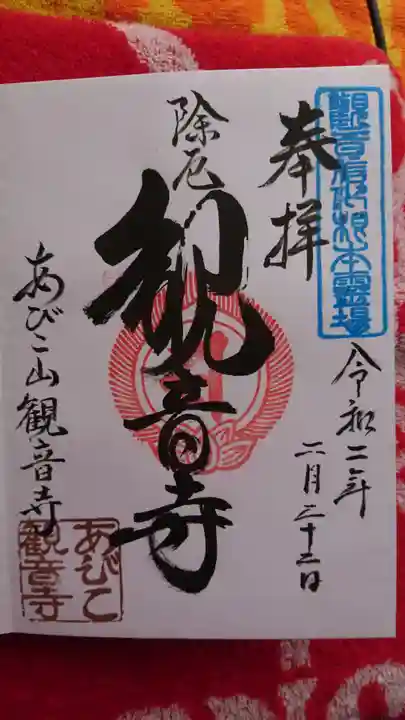 觀音信仰根本霊場
奉拝
令和二年
二月二十二日
除厄
観音寺
あびこ山観音寺
あびこ
観音寺